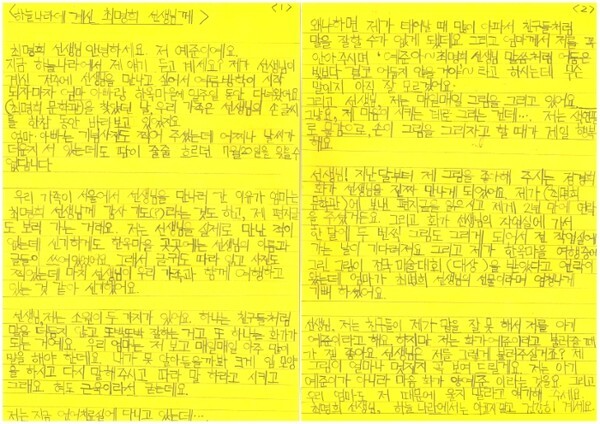 <하늘나라에 계신 최명희 선생님께>
<1>
최명희 선생님 안녕하세요. 저 예준이에요.
지금 하늘나라에서 제 얘기 듣고 계세요? 제가 선생님이
계신 전주에 선생님을 만나고 싶어서 여름방학이 시작
되자마자 엄마 아빠랑 한옥마을에 일주일 동안 다녀왔어요
(최명희 문학관)을 찾았던 날, 우리 가족은 선생님의 손글씨
를 한참 동안 바라보고 있었지요.
엄마, 아빠는 기념사진도 찍어 주셨는데 어찌나 날씨가
더운지 서 있는데도 땀이 줄줄 흐르던 7월20일을 잊을 수
없답니다.
우리 가족이 서울에서 선생님을 만나러 간 이유가 엄마는
최명희 선생님께 감사 기도(?)라는 것도 하고, 제 편지글
도 보러 가는 거래요. 저는 선생님을 실제로 만난 적이
없는데 신기하게도 한옥마을 곳곳에는 선생님의 이름과
글들이 쓰여있었어요. 그래서 글귀도 따라 읽고 사진도
찍었는데 마치 선생님이 우리 가족과 함께 여행하고
있는 것 같아 신기했어요.
선생님, 저는 소원이 두 가지가 있어요. 하나는 친구들처럼
말을 더듬지 않고 또박또박 잘하는 거고, 또 하나는 화가가
되는 거예요. 우리 엄마는 저 보고 매일매일 아주 많이
말을 해야 한데요. 내가 못 알아들을까봐 크게 입 모양
을 하시고 다시 말해주시고 따라 말 하라고 시키고
그래요. 혀도 근육이라서 굳는데요.
저는 지금 언어치료실에 다니고 있는데…
<2>
왜냐하면 제가 태어날 때 많이 아파서 친구들처럼
말을 잘할 수가 없게 됐데요. 그리고 엄마께서 저를 꼭
안아주시며 '예준아~ 최명희 선생님 말씀처럼 어둠은
빛보다 결코 어둡지 않을 거야~'라고 하시는데 무슨
말인지 아직 잘 모르겠어요.
그리고 선생님, 저는 매일매일 그림을 그리고 있어요.
그냥요, 제 마음이 시키는 대로 그리는 건데… 저는 색연필
로 물감으로, 손이 그림을 그리자고 할 때가 제일 행복
해요.
선생님! 지난달부터 제 그림을 좋아해 주시는
화가 선생님을 진짜 만나게 되었어요. 제가 (최명희
문학관)에 보낸 편지글을 읽으시고 제게 2년 만에 연락
을 주셨거든요. 그리고 화가 선생님의 작업실에 가서
한 달에 두 번씩 그림도 그리게 되어서 전 작업실에
가는 날이 기다려져요. 그리고 제가 한옥마을 여행중에
그린 그림이 전국 미술대회 (대상)을 받았다고 연락이
왔는데 엄마가 최명희 선생님의 선물이라며 엄청나게
기뻐 하셨어요.
선생님, 저는 친구들이 제가 말을 잘 못 해서 저를 아기
예준이라고 해요. 하지만 저는 화가 예준이라고 불러줄 때
가 젤 좋아요. 선생님도 저를 그렇게 불러주실거죠? 제
그림이 얼마나 멋진지 꼭 보여 드릴게요. 저는 아기
예준이가 아니라 마음 화가 양예준 이라는 것을요. 그리고
우리 엄마도 저 때문에 울지 말라고 얘기해 주세요.
최명희 선생님, 하늘 나라에서는 아프지말고 건강히 계세요.